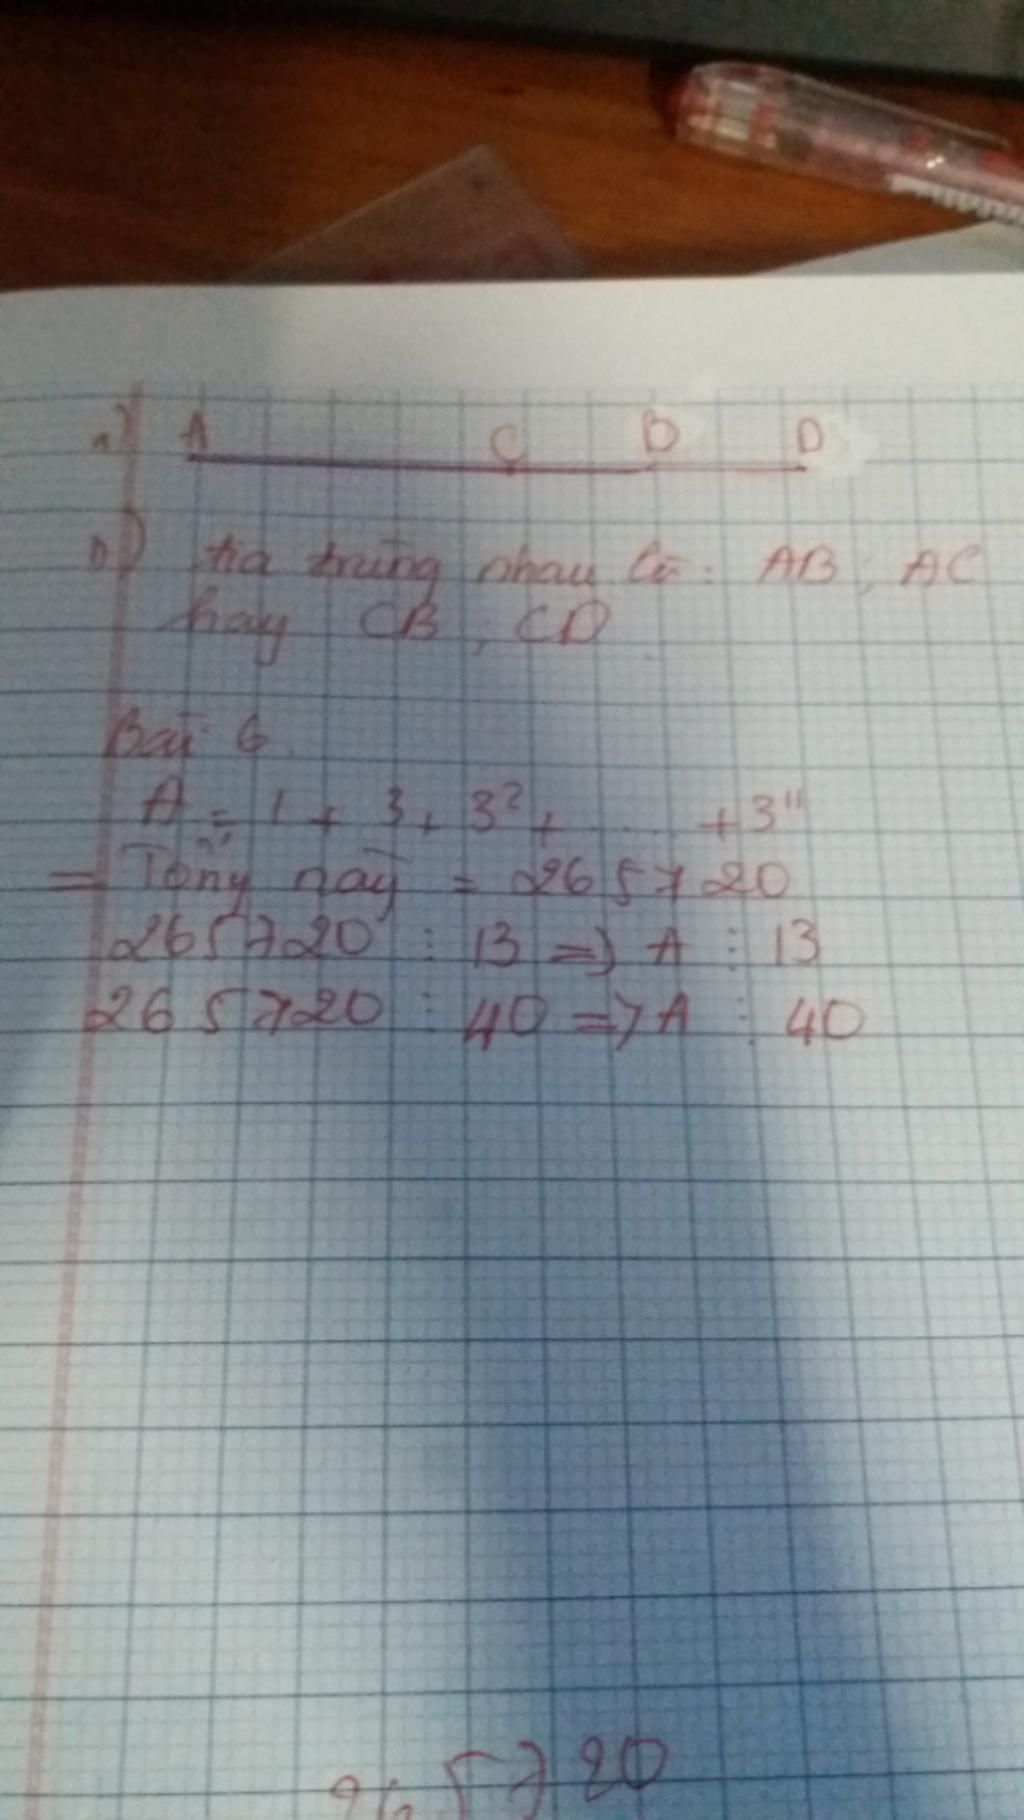 a) A C B D
b) tia trùng nhau là : AB ; AC
hay CB ; CD
Bài 6
A = 1 + 3 + 3² + ..... + 3¹¹
= Tổng này = 265720
265720 ⋮ 13 => A ⋮ 13
265720 ⋮ 40 => A ⋮ 40
265720